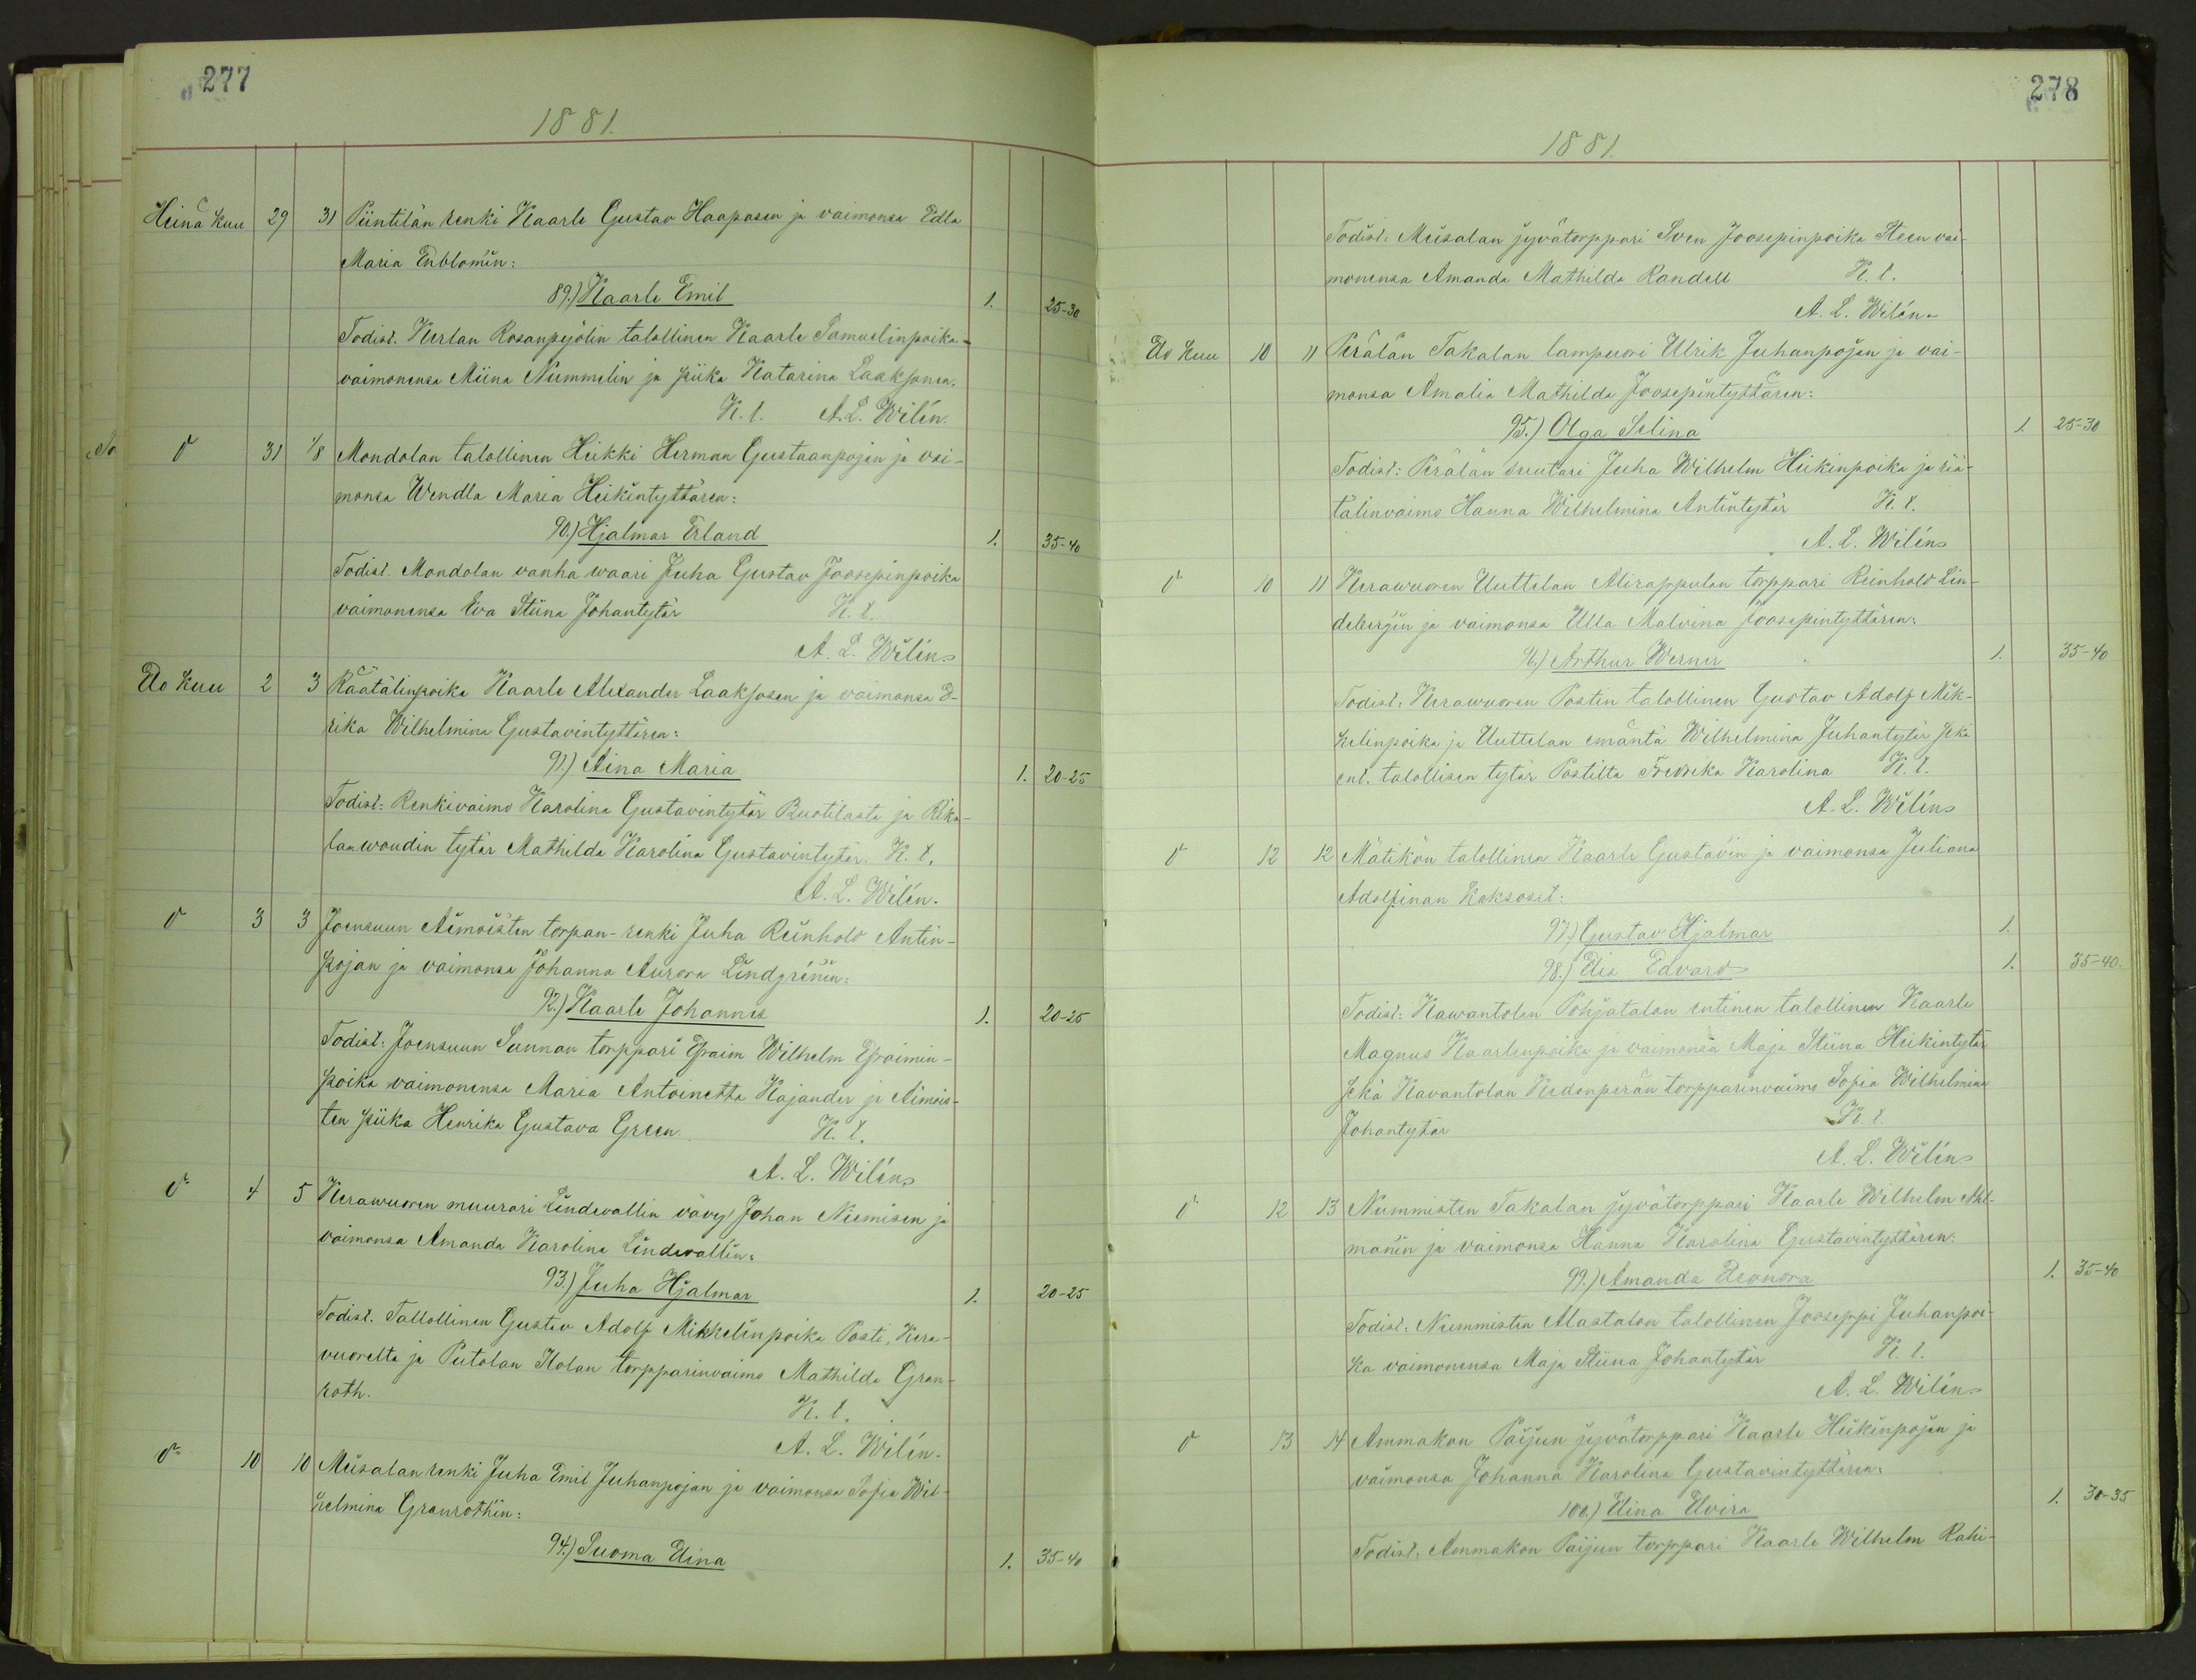 277
1881.
Heinä Kuu 29 31 Piintilän renki Kaarle Gustav Haapasen ja vaimonsa Edla
Maria Enblomin:
89.) Kaarle Emil 1. 25-30
Todist. Kerlan talollinen Kaarle Samuelinpoika
vaimonensa Miina Nummelin ja piika Katarina Laaksonen.
K. t. A. L. Wilén.
31 1/8 Mondolan talollinen Heikki Herman Gustaanpojan ja vai-
monsa Wendla Maria Heikintyttären:
90.) Hjalmar Erland 1. 35-40
Todist. Mondolan vanha waari Juha Gustav Joosepinpoika
vaimonensa Eva Stiina Johantytär K. t.
A. L. Wilén
Elo Kuu 2 3 Räätälinpoika Kaarle Alexander Laaksosen ja vaimonsa E-
rika Wilhelmina Gustavintyttären:
91.) Aina Maria 1. 20-25
Todist: Renkivaimo Karolina Gustavintytär Ruotilasta ja Rika-
lanwoudin tytär Mathilda Karolina Gustavintytär. K. t.
A. L. Wilén.
3 3 Joensuun Aimoisten torpan-renki Juha Reinhold Antin-
pojan ja vaimonsa Johanna Aurora Lindgrénin:
92.) Kaarle Johannes 1. 20-25
Todist: Joensuun Sunnan torppari Efraim Wilhelm Efraimin-
poika vaimonensa Maria Antoinetta Kajander ja Aimois-
ten piika Henrika Gustava Green. K. t.
A. L. Wilén
4 5 Kerawuoren muurari Lindevallin vävy Johan Niemisen ja
vaimonsa Amanda Karolina Lindevallin:
93.) Juha Hjalmar 1. 20-25
Todist. Tallollinen Gustav Adolf Mikkelinpoika Posti, Kera-
vuorelta ja Putolan Ilolan torpparinvaimo Mathilda Gran-
roth. K. t.
A. L. Wilén.
10 10 Miisalan renki Juha Emil Juhanpojan ja vaimonsa Sofia Wil-
helmina Granrothin:
94.) Suoma Elina 1. 35-40
278
1881.
Todist: Miisalan jyvätorppari Sven Joosepinpoika Steen vai-
monensa Amanda Mathilda Randell K. t.
A. L. Wilén
Elo Kuu 10 11 Perälän Takalan lampuori Ulrik Juhanpojan ja vai-
monsa Amalia Mathilda Joosepintyttären:
95.) Olga Selina 1 25-30
Todist: Perälän suutari Juha Wilhelm Heikinpoika ja rää-
tälinvaimo Hanna Wilhelmina Antintytär K. t.
A. L. Wilén
10 11 Kerawuoren Uuttelan Alirappulan torppari Reinhold Lin-
debergin ja vaimonsa Ulla Malvina Joosepintyttären:
96.) Arthur Werner 1. 35-40
Todist: Kerawuoren Postin talollinen Gustav Adolf Mik-
kelinpoika ja Uuttelan emäntä Wilhelmina Juhantytär sekä
ent. talollisen tytär Postilta Fredrika Karolina K. t.
A. L. Wilén
12 12 Mätikön talollinen Kaarle Gustavin ja vaimonsa Juliana
Adolfinan Kaksoset:
97.) Gustav Hjalmar 1.
98.) Elis Edvard 1. 35-40.
Todist: Kawantolan Pohjatalon entinen talollinen Kaarle
Magnus Kaarlenpoika ja vaimonsa Maja Stiina Heikintytär
sekä Kavantolan Kedonperän torpparinvaimo Sofia Wilhelmina
Johantytär K. t.
A. L. Wilén
12 13 Nummisten Takalan jyvätorppari Kaarle Wilhelm Ahl-
manin ja vaimonsa Hanna Karolina Gustavintyttären:
99.) Amanda Eleonora 1. 35-40
Todist: Nummisten Alastalon talollinen Jooseppi Juhanpoi-
ka vaimonensa Maja Stiina Johantytär K. t.
A. L. Wilén
13 14 Ammakon Paijun jyvätorppari Kaarle Heikinpojan ja
vaimonsa Johanna Karolina Gustavintyttären:
100.) Elina Elvira 1. 30-35
Todist: Ammakon Paijun torppari Kaarle Wilhelm Rahi-